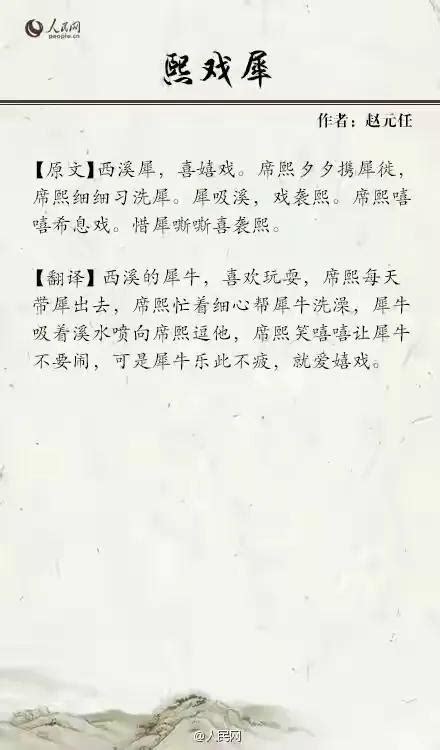 人民网
people.cn
熙戏犀
作者：赵元任
【原文】西溪犀，喜嬉戏。席熙夕夕携犀徙，
席熙细细习洗犀。犀吸溪，戏袭熙。席熙嘻
嘻希息戏。惜犀嘶嘶喜袭熙。
【翻译】西溪的犀牛，喜欢玩耍，席熙每天
带犀出去，席熙忙着细心帮犀牛洗澡，犀牛
吸着溪水喷向席熙逗他，席熙笑嘻嘻让犀牛
不要闹，可是犀牛乐此不疲，就爱嬉戏。
@人民网